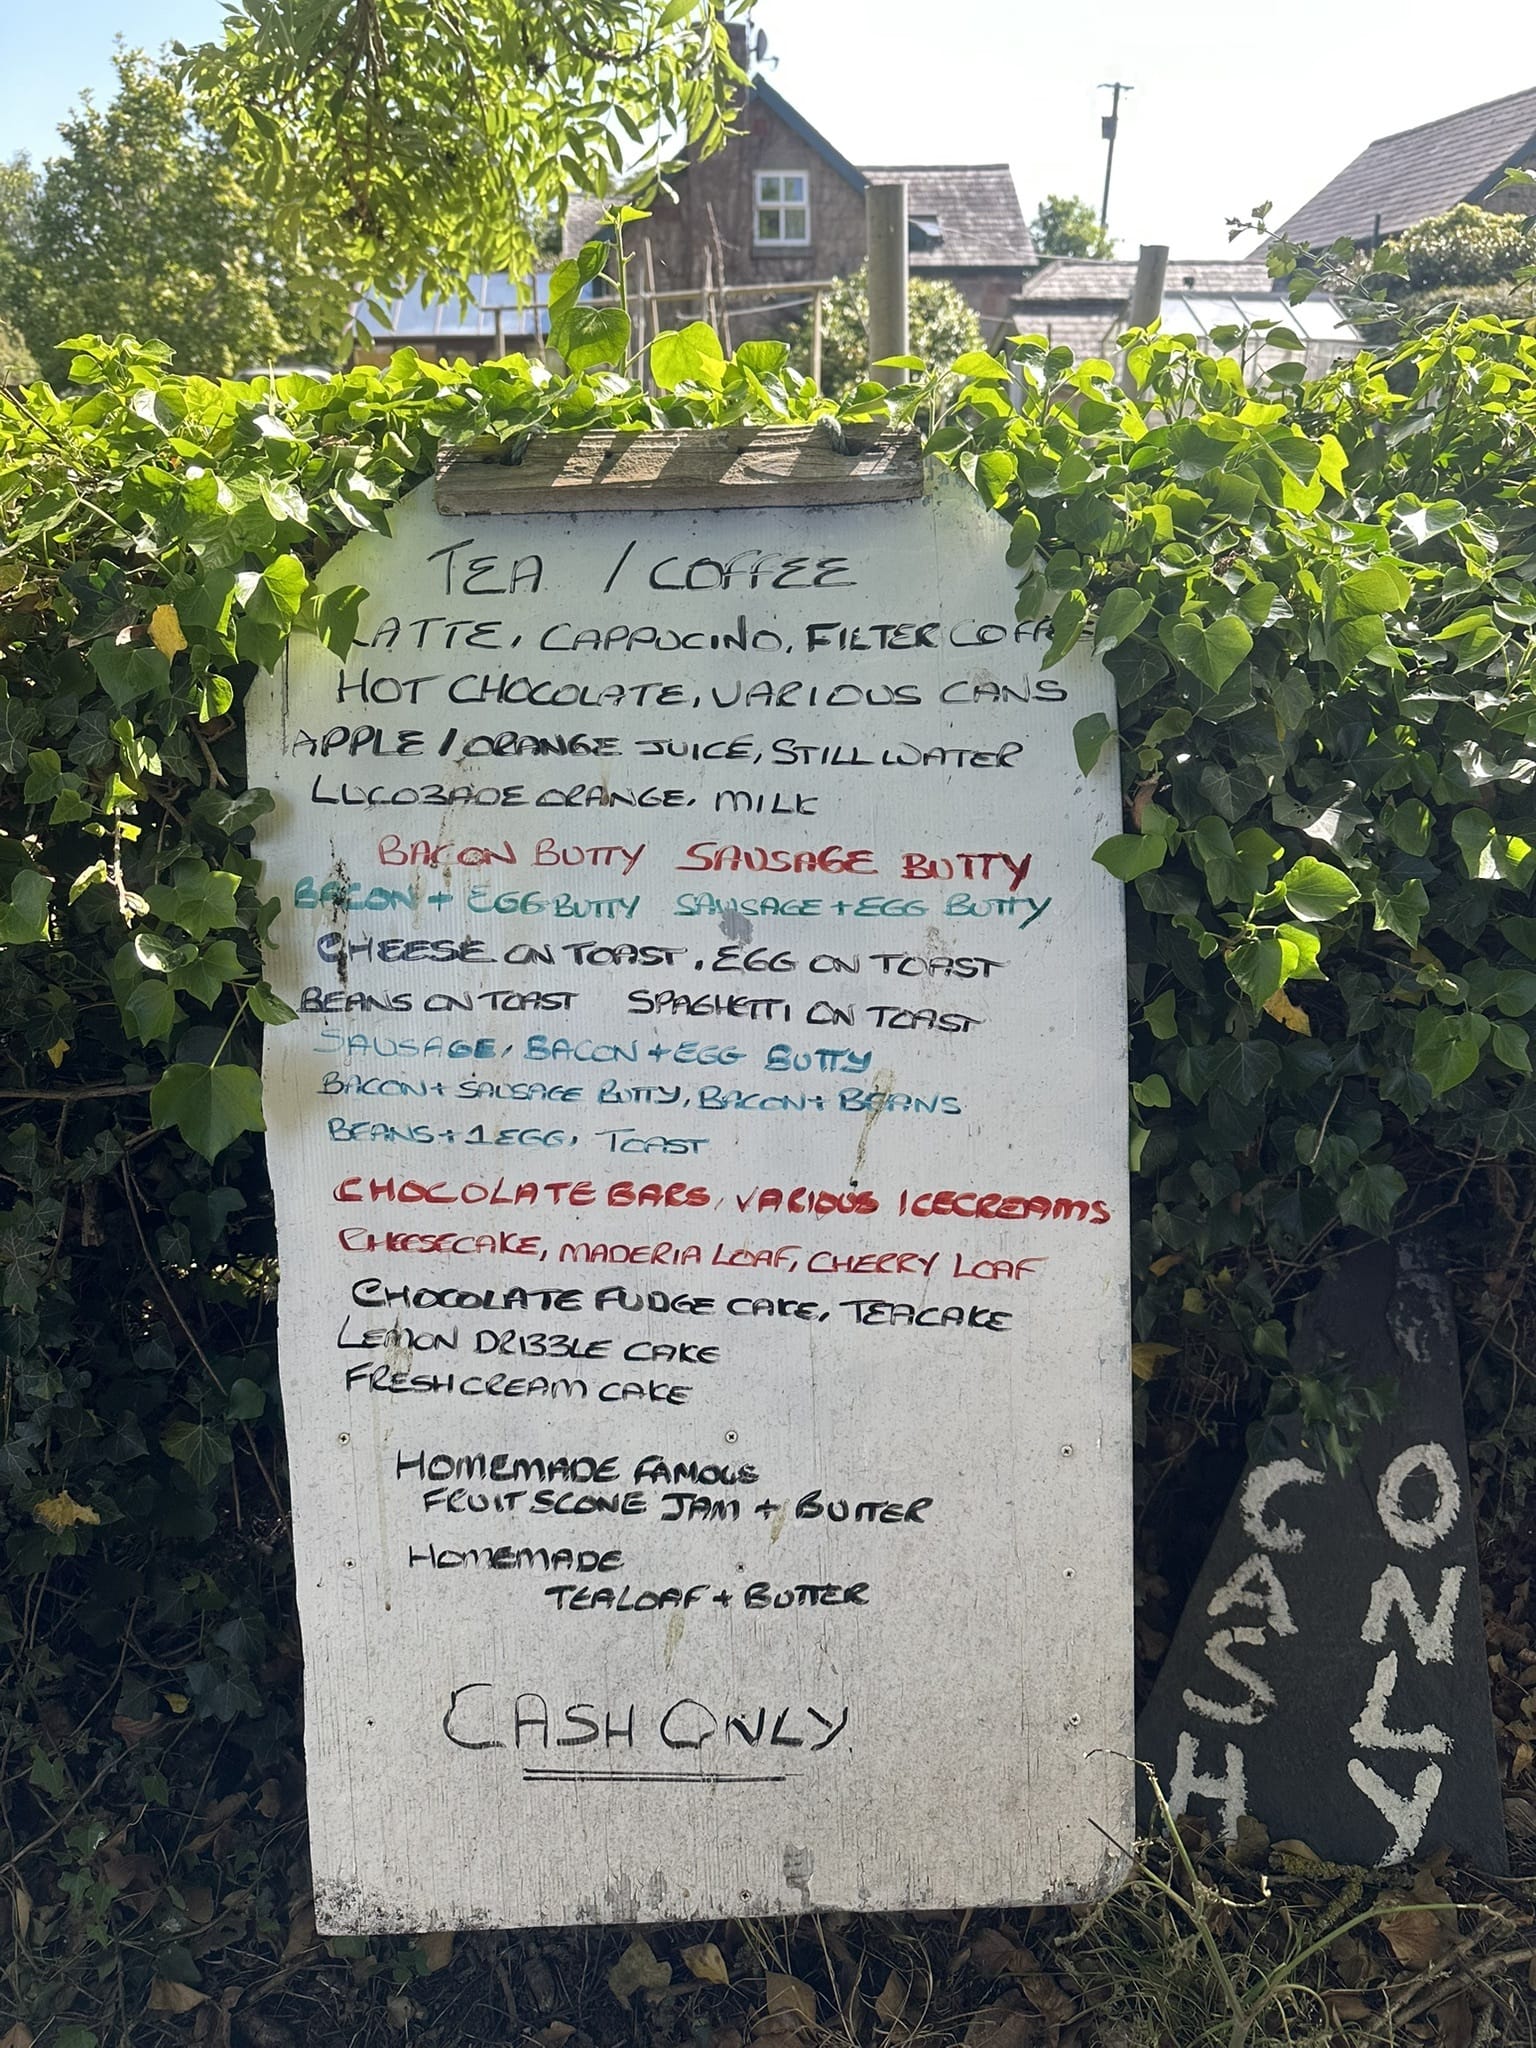 TEA / COFFEE
LATTE, CAPPUCINO, FILTER COFFEE
HOT CHOCOLATE, VARIOUS CANS
APPLE / ORANGE JUICE, STILL WATER
LUCOZADE ORANGE, MILK
BACON BUTTY SAUSAGE BUTTY
BACON + EGG BUTTY SAUSAGE + EGG BUTTY
CHEESE ON TOAST, EGG ON TOAST
BEANS ON TOAST SPAGHETTI ON TOAST
SAUSAGE, BACON + EGG BUTTY
BACON + SAUSAGE BUTTY, BACON + BEANS
BEANS + 1 EGG, TOAST
CHOCOLATE BARS, VARIOUS ICECREAMS
CHEESECAKE, MADERIA LOAF, CHERRY LOAF
CHOCOLATE FUDGE CAKE, TEACAKE
LEMON DRIZZLE CAKE
FRESH CREAM CAKE
HOMEMADE FAMOUS
FRUIT SCONE JAM + BUTTER
HOMEMADE
TEALOAF + BUTTER
CASH ONLY
CASH
ONLY